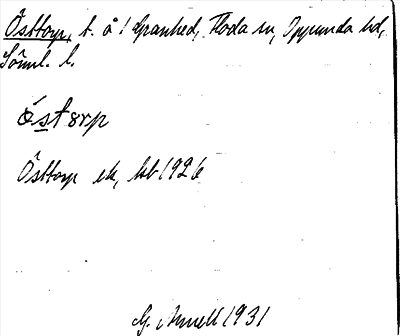 Östtorp, t. å 1 Granhed, Floda sn, Oppunda hd,
Söml. l.
östorp
Östtorp ek, kb 1926
G. Arnell 1931